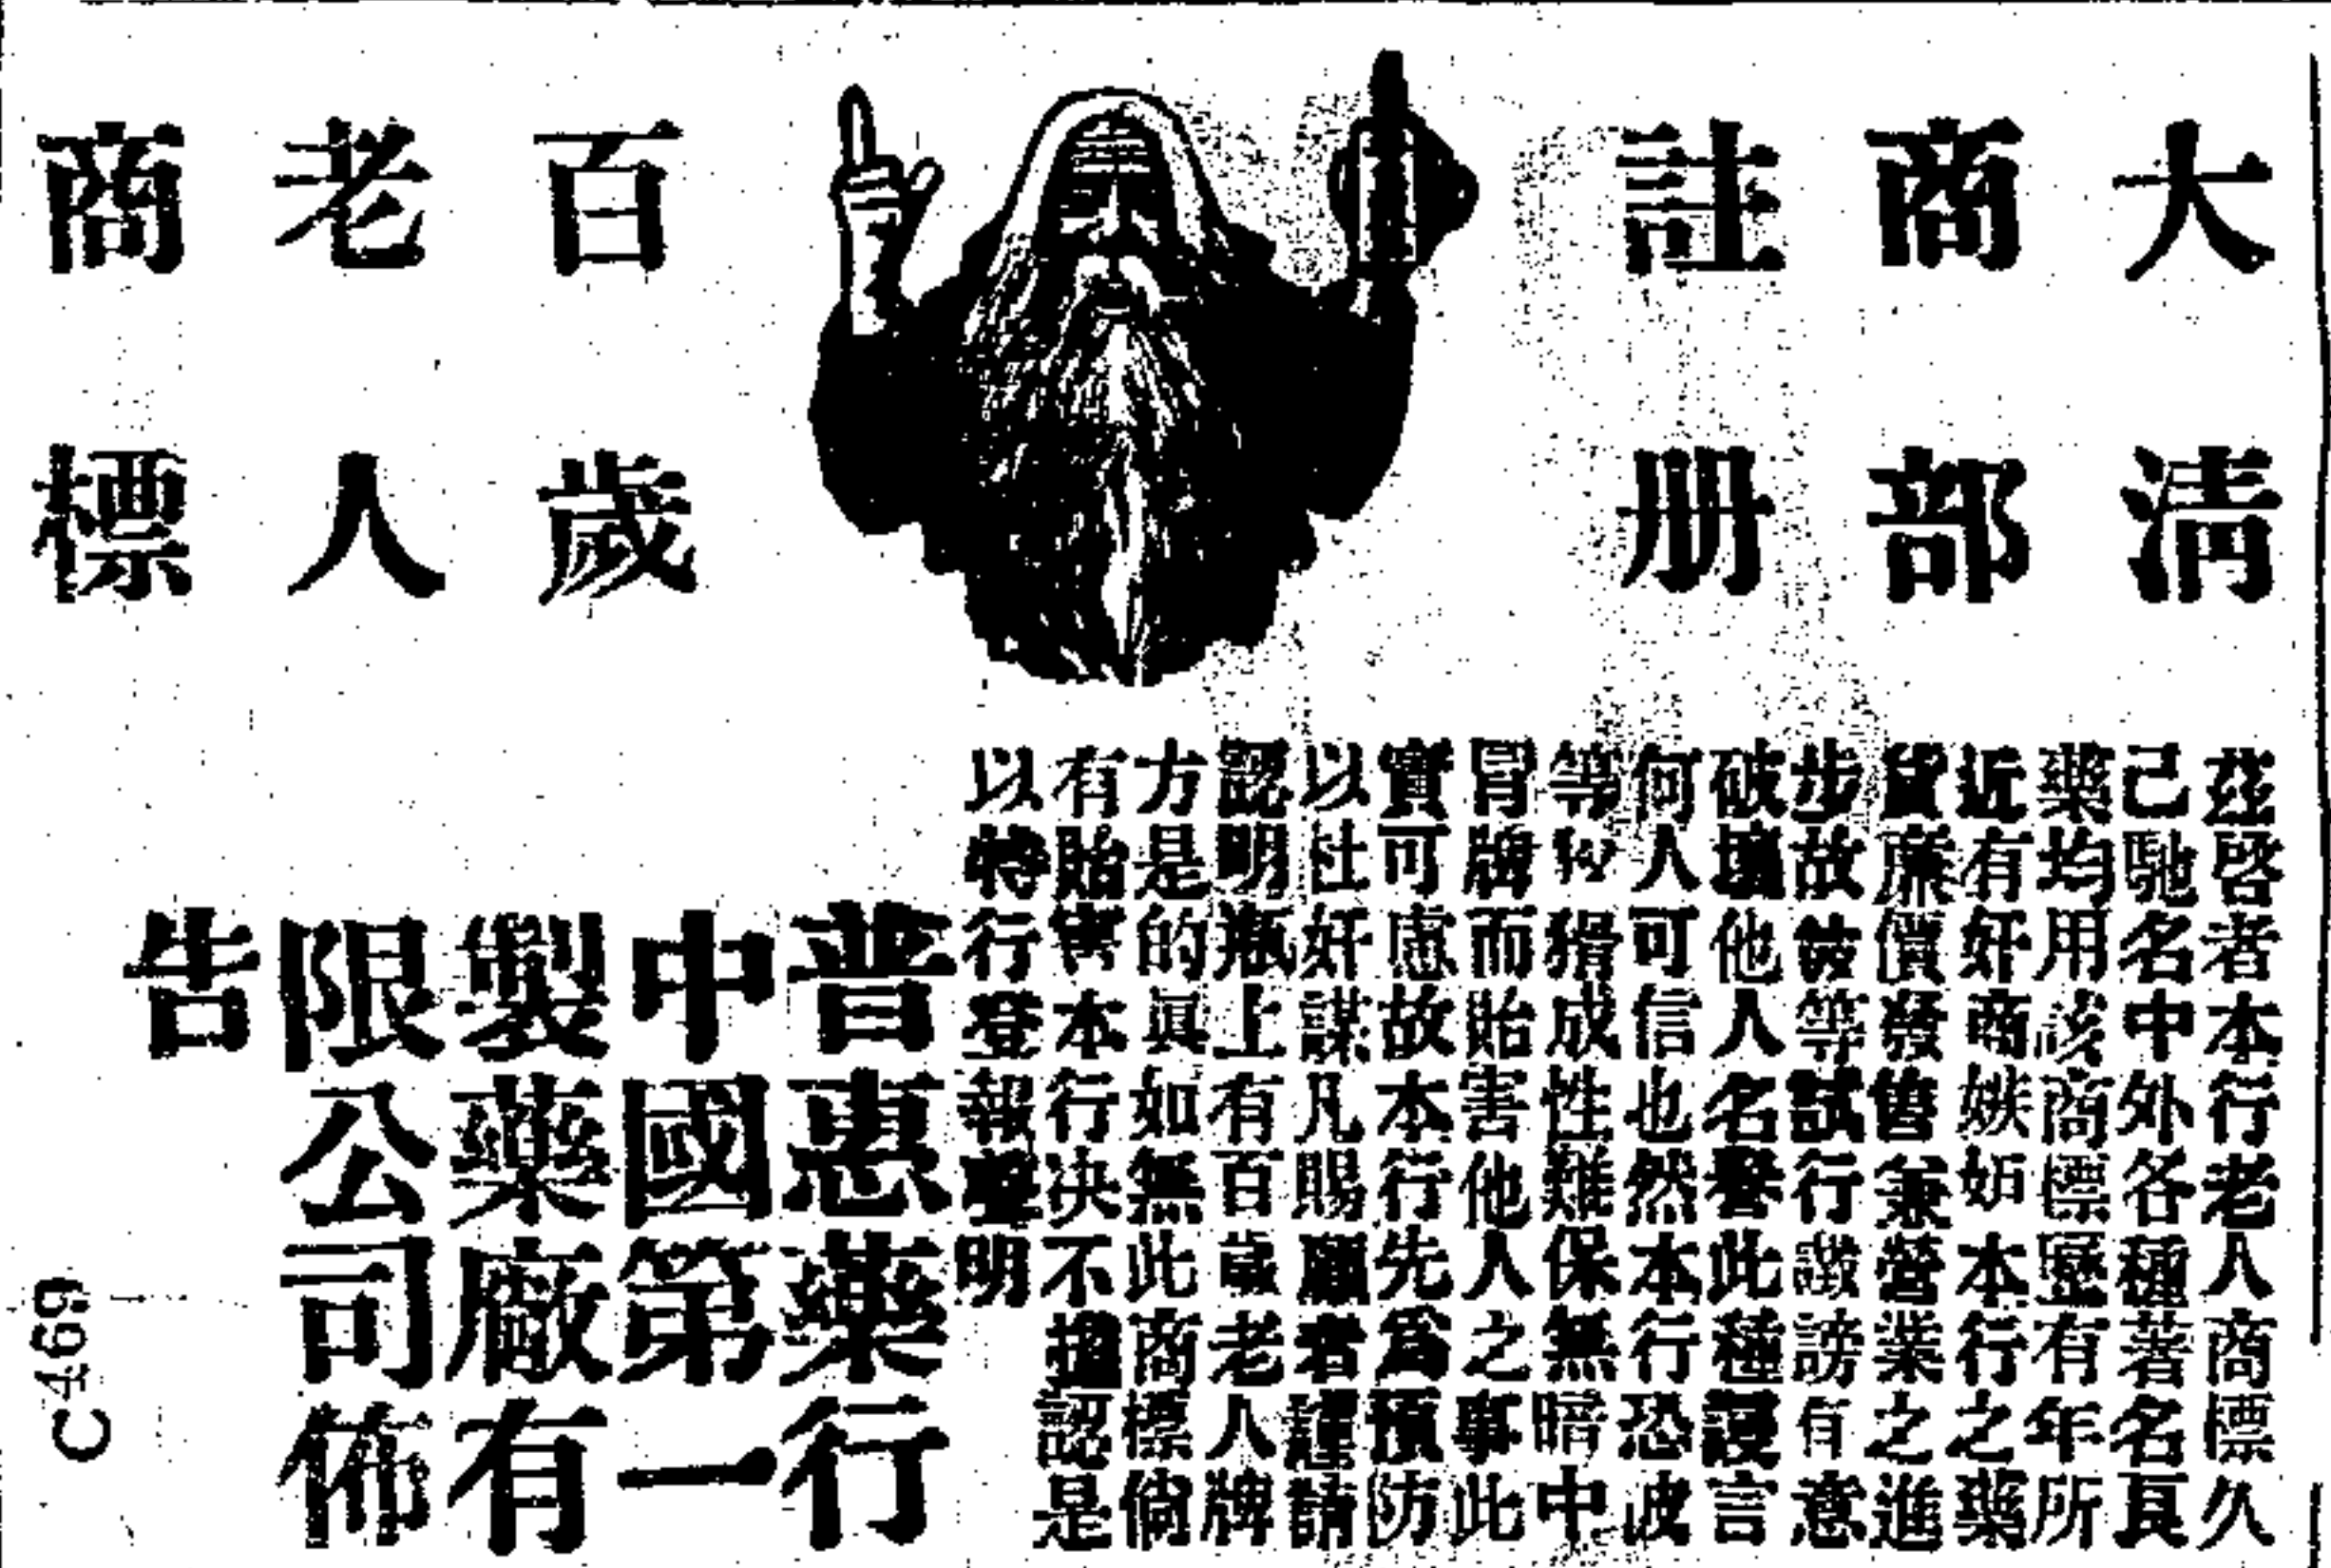 大清
商部
註册
百歲
老人
商標
茲啓者本行老人商標久
己馳名中外各種著名良
藥均用該商標歷有年所
近有奸商嫉妒本行之藥
貨廉價發售兼營業之進
步故彼等試行譭謗有意
破壞他人名譽此種謾言
何人可信也然本行恐彼
等狡猾成性難保無暗中
冒牌而貽害他人之事此
實可慮故本行先爲預防
以杜奸謀凡賜顧者謹請
認明瓶上有百歲老人牌
方是的眞如無此商標倘
有貽害本行决不擔認是
以特行登報聲明
普惠藥行
中國第一
製藥廠有
限公司佈
告
C469